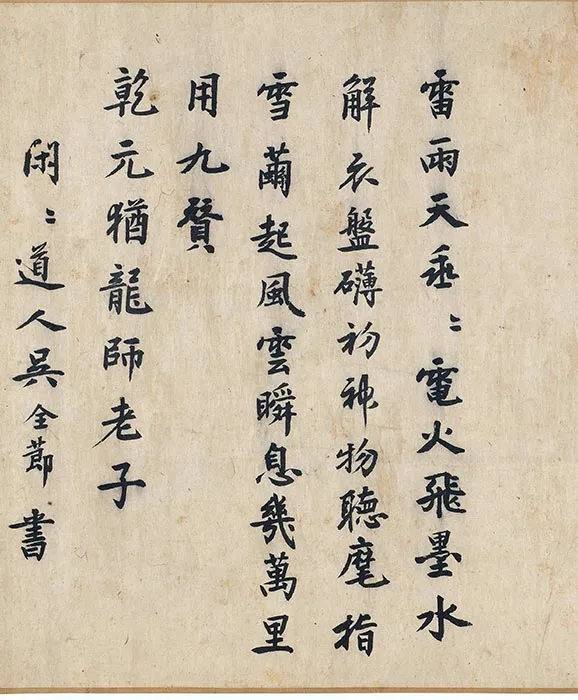 雷雨天垂〻電火飛墨水
解衣盤礴初神物聽麾指
雪繭起風雲瞬息幾萬里
用九賛
乾元猶龍師老子
閑〻道人吳全節書